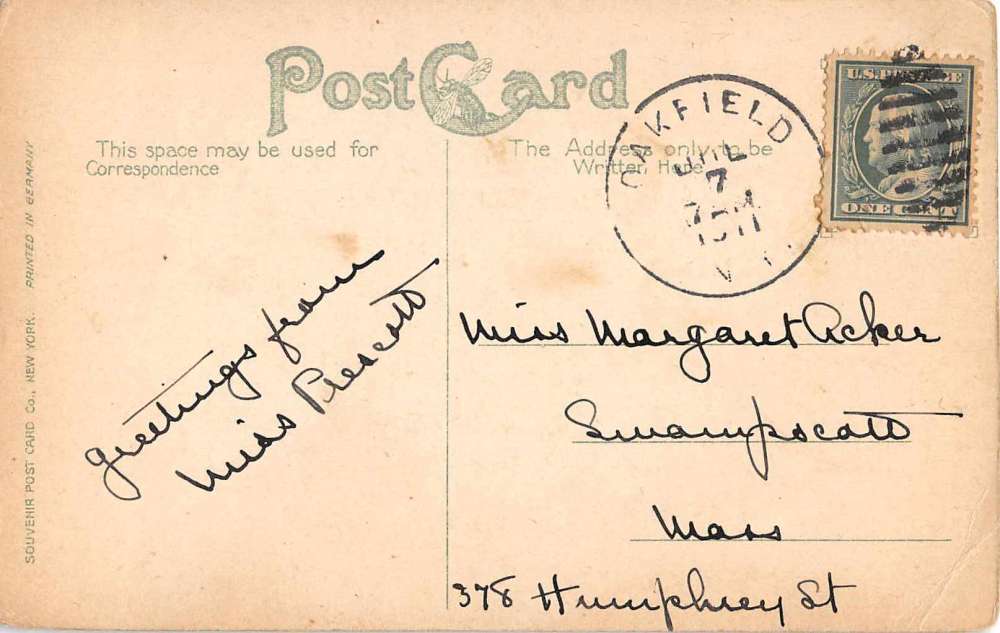 Post Card
This space may be used for
Correspondence
The Address only to be
Written Here
OAKFIELD
JUL
7
1911
U.S. POSTAGE
ONE CENT
greetings from
Miss Prescott
Miss Margaret Acker
Swampscott
Mass
378 Humphrey St
SOUVENIR POST CARD Co., NEW YORK. PRINTED IN GERMANY